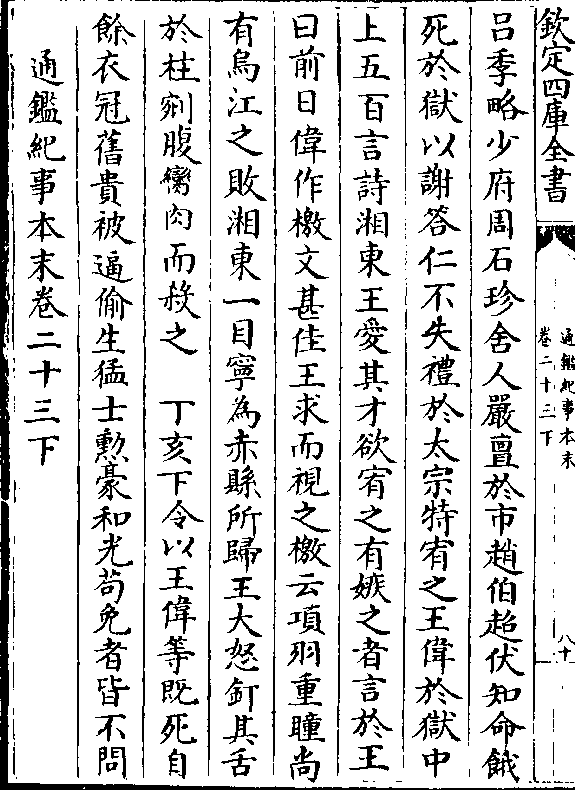 欽定四庫全書
通鑑紀事本末
卷二十三下
八十
吕季略少府周石珍舍人嚴亶於市趙伯超伏知命餓
死於獄以謝答仁不失禮於太宗特宥之王偉於獄中
上五百言詩湘東王愛其才欲宥之有嫉之者言於王
曰前日偉作檄文甚佳王求而視之檄云項羽重瞳尚
有烏江之敗湘東一目寧為赤縣所歸王大怒釘其舌
於柱剜腹臠肉而殺之　丁亥下令以王偉等既死自
餘衣冠舊貴被逼偷生猛士勲豪和光苟免者皆不問
通鑑紀事本末卷二十三下